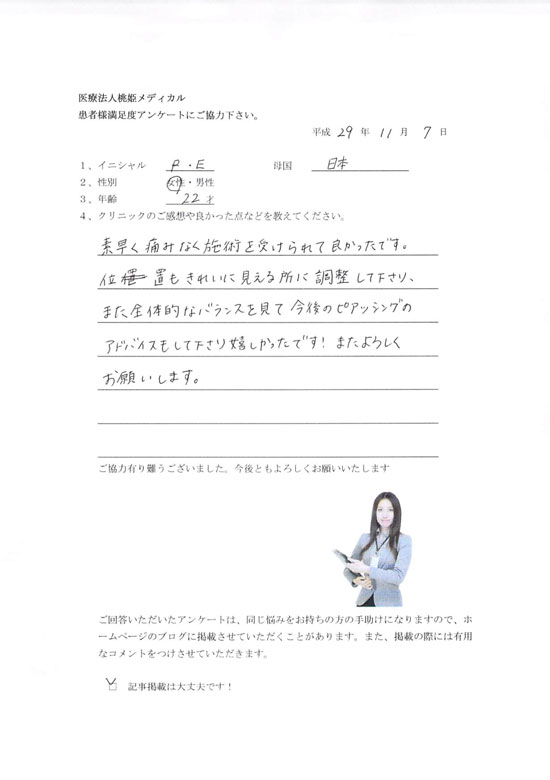 医療法人桃姫メディカル
患者様満足度アンケートにご協力下さい。
平成 29 年 11 月 7 日
1、イニシャル P・E 母国 日本
2、性別 女性・男性
3、年齢 22 才
4、クリニックのご感想や良かった点などを教えてください。
素早く痛みなく施術を受けられて良かったです。
位置もきれいに見える所に調整して下さり、
また全体的なバランスを見て今後のピアッシングの
アドバイスもして下さり嬉しかったです!またよろしく
お願いします。
ご協力有り難うございました。今後ともよろしくお願いいたします
ご回答いただいたアンケートは、同じ悩みをお持ちの方の手助けになりますので、ホ
ームページのブログに掲載させていただくことがあります。また、掲載の際には有用
なコメントをつけさせていただきます。
記事掲載は大丈夫です!